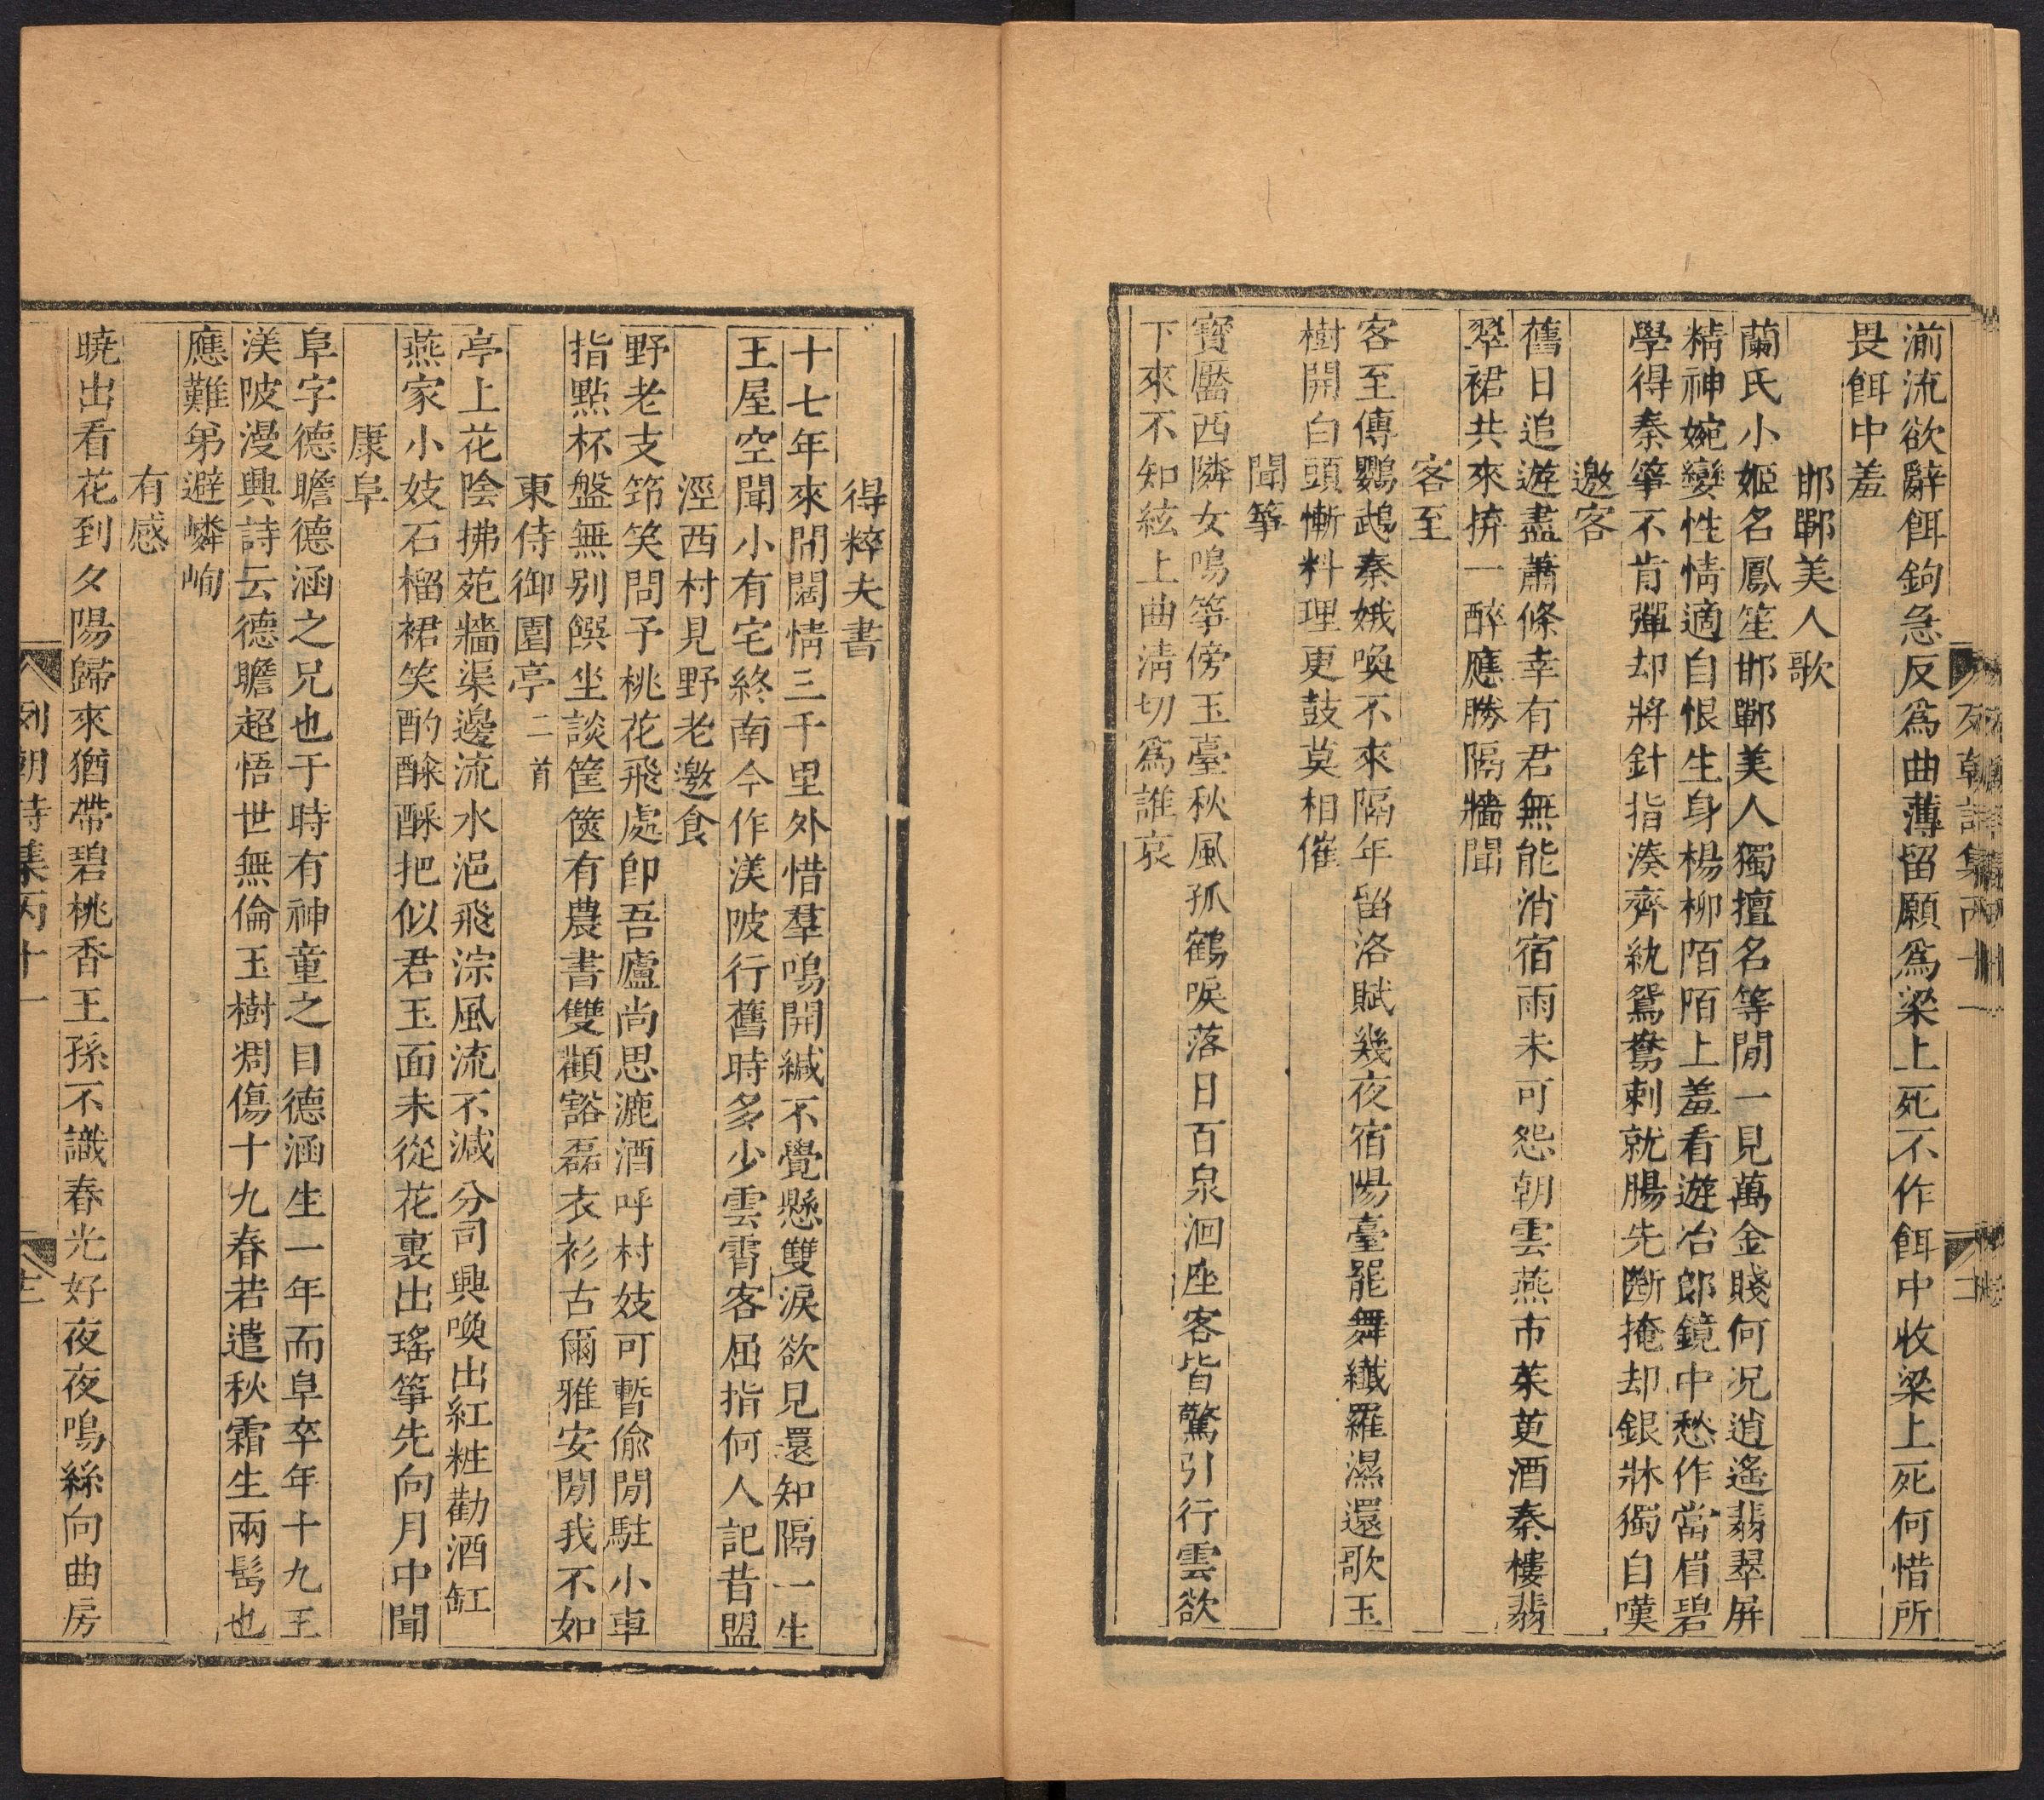 湔流欲辭餌鉤急反爲曲薄留願爲梁上死不作餌中收梁上死何惜所
畏餌中羞
邯鄲美人歌
蘭氏小姬名鳳笙邯鄲美人獨擅名等閒一見萬金賤何况逍遙翡翠屏
精神婉孌性情適自恨生身楊柳陌陌上羞看遊冶郎鏡中愁作當眉碧
學得秦箏不肯彈却將針指湊齊紈鴛鴦刺就腸先斷掩却銀牀獨自嘆
邀客
舊日追遊盡蕭條幸有君無能消宿雨未可怨朝雲燕市茱萸酒秦樓翡
翠裙共來拚一醉應勝隔牆聞
客至
客至傳鸚鵡秦娥喚不來隔年留洛賦幾夜宿陽臺罷舞纖羅濕還歌玉
樹開白頭慚料理更鼓莫相催
聞箏
寶靨西隣女鳴箏傍玉臺秋風孤鶴唳落日百泉洄座客皆驚引行雲欲
下來不知絃上曲淸切爲誰哀
得粹夫書
十七年來閒闊情三千里外惜羣鳴開緘不覺懸雙淚欲見還知隔一生
王屋空聞小有宅終南今作渼陂行舊時多少雲霄客屈指何人記昔盟
涇西村見野老邀食
野老支筇笑問予桃花飛處卽吾廬尚思漉酒呼村妓可暫偷閒駐小車
指點杯盤無别饌坐談筐篋有農書雙顴豁磊衣衫古爾雅安閒我不如
東侍御園亭二首
亭上花陰拂苑牆渠邊流水浥飛淙風流不減分司興喚出紅粧勸酒缸
燕家小妓石榴裙笑酌酴酥把似君玉面未從花裏出瑤箏先向月中聞
康阜
阜字德瞻德涵之兄也于時有神童之目德涵生一年而阜卒年十九王
渼陂漫興詩云德瞻超悟世無倫玉樹凋傷十九春若遣秋霜生兩髩也
應難弟避嶙峋
有感
曉出看花到夕陽歸來猶帶碧桃香王孫不識春光好夜夜鳴絲向曲房
列朝詩集丙十一